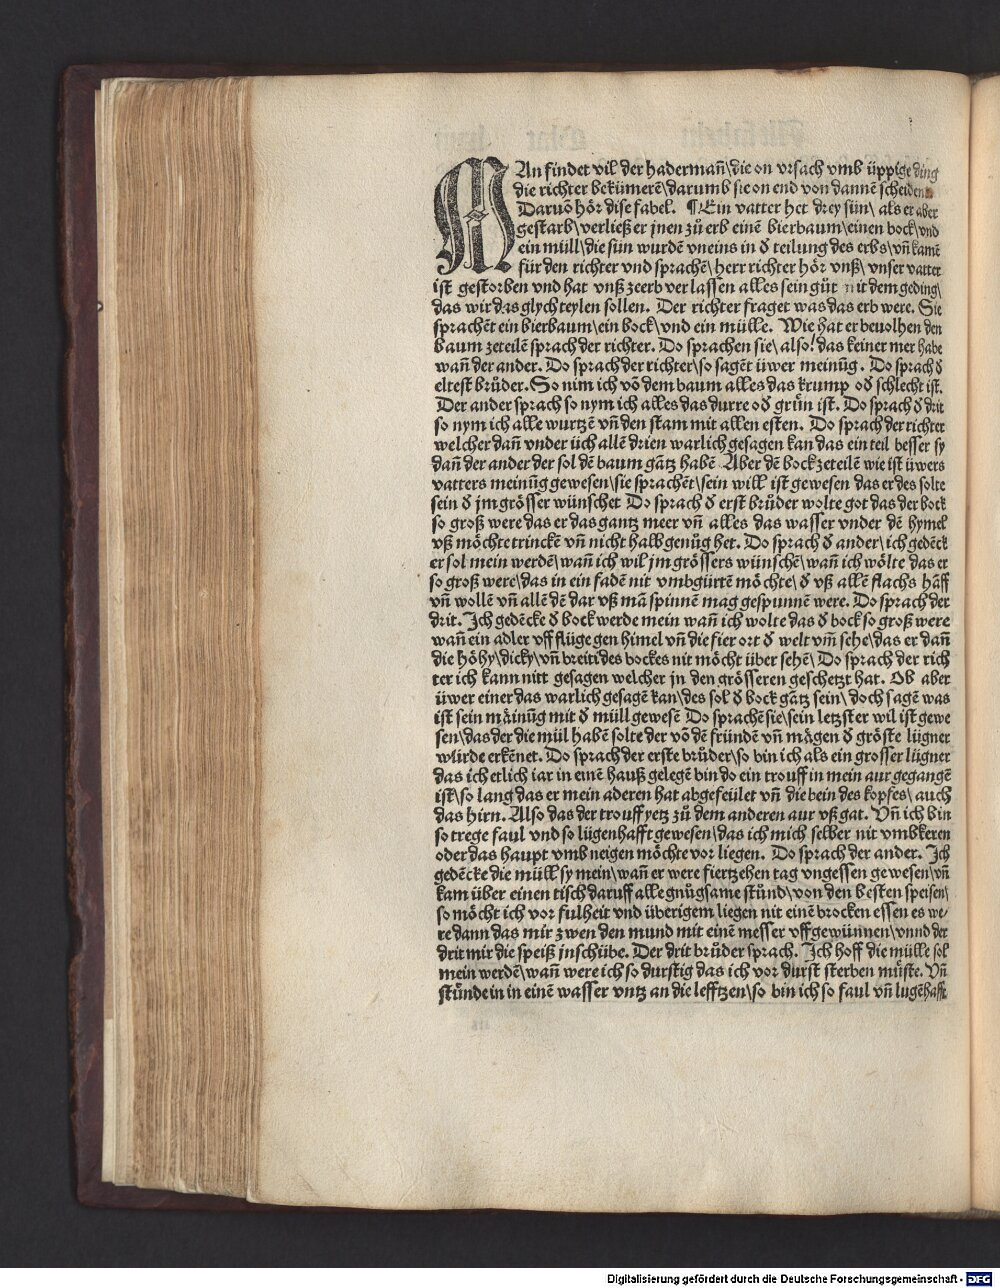 MAn findet vil der hadermañ\die on vrsach vmb üppige ding
die richter bekümerē\darumb sie on end von dannē scheiden.
Daruō hör dise fabel. ¶Ein vatter het drey sün\ als er aber
gestarb\verließ er jnen zů erb einē bierbaum\einen bock\vnd
ein müll\die sün wurdē vneins in d̄ teilung des erbs\vñ kamē
für den richter vnd sprachē\herr richter hör vnß\ vnser vatter
ist gestorben vnd hat vnß zeerb verlassen alles sein gůt mit dem geding\
das wir das glych teylen sollen. Der richter fraget was das erb were. Sie
sprachēt ein bierbaum\ein bock\vnd ein mülle. Wie hat er beuolhen den
baum zeteilē sprach der richter. Do sprachen sie\ also! das keiner mer habe
wañ der ander. Do sprach der richter\so sagēt üwer meinūg. Do sprach d̄
eltest brůder. So nim ich vō dem baum alles das krump od̄ schlecht ist.
Der ander sprach so nym ich alles das durre od̄ grün ist. Do sprach d̄ drit
so nym ich alle wurtzē vñ den stam mit allen esten. Do sprach der richter
welcher dañ vnder üch allē drien warlich gesagen kan das ein teil besser sy
dañ der ander der sol dē baum gātz habē Aber dē bock zeteilē wie ist üwers
vatters meinūg gewesen\sie sprachēt\sein will ist gewesen das er des solte
sein d̄ jm grösser wünschet Do sprach d̄ erst brůder wolte got das der bock
so groß were das er das gantz meer vñ alles das wasser vnder dē hymel
vß möchte trinckē vñ nicht halb genůg het. Do sprach d̄ ander\ich gedēck
er sol mein werdē\wañ ich wil jm grössers wünschē\wañ ich wölte das er
so groß were\das in ein fadē nit vmbgürtē möchte\ d̄ vß allē flachs hāff
vñ wollē vñ allē dē dar vß mā spinnē mag gespunnē were. Do sprach der
drit. Ich gedēcke d̄ bock werde mein wañ ich wolte das d̄ bock so groß were
wañ ein adler vff flüge gen himel vñ die fier ort d̄ welt vm̄ sehe\das er dañ
die höhy\dicky\vñ breiti des bockes nit möcht über sehē\ Do sprach der rich
ter ich kann nitt gesagen welcher jn den grösseren geschetzt hat. Ob aber
üwer einer das warlich gesagē kan\des sol d̄ bock gātz sein\doch sagē was
ist sein mäinūg mit d̄ müll gewesē Do sprachē sie\sein letzster wil ist gewe
sen\das der die mül habē solte der vō dē fründē vñ mägen d̄ gröste lügner
würde erkēnet. Do sprach der erste brůder\so bin ich als ein grosser lügner
das ich etlich iar in einē hauß gelegē bin do ein trouff in mein aur gegangē
ist\so lang das er mein aderen hat abgefeület vñ die bein des kopfes\ auch
das hirn. Also das der trouff yetz zů dem anderen aur vß gat. Vñ ich bin
so trege faul vnd so lügenhafft gewesen\das ich mich selber nit vmbkeren
oder das haupt vmb neigen möchte vor liegen. Do sprach der ander. Ich
gedēcke die müll sy mein\wañ er were fiertzehen tag vngessen gewesen\vñ
kam über einen tisch daruff alle gnůgsame stůnd\von den besten speisen\
so möcht ich vor fulheit vnd überigem liegen nit einē brocken essen es we/
re dann das mir zwen den mund mit einē messer vff gewünnen\vnnd der
drit mir die speiß jnschübe. Der drit brůder sprach. Ich hoff die mülle sol
mein werdē\wañ were ich so durstig das ich vor durst sterben müste. Vñ
stünde in in einē wasser vntz an die lefftzen\so bin ich so faul vñ lugēhafft
Digitalisierung gefördert durch die Deutsche Forschungsgemeinschaft - DFG